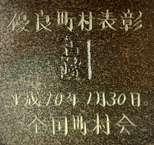 優良町村表彰
平成10年1月30日
全国町村会